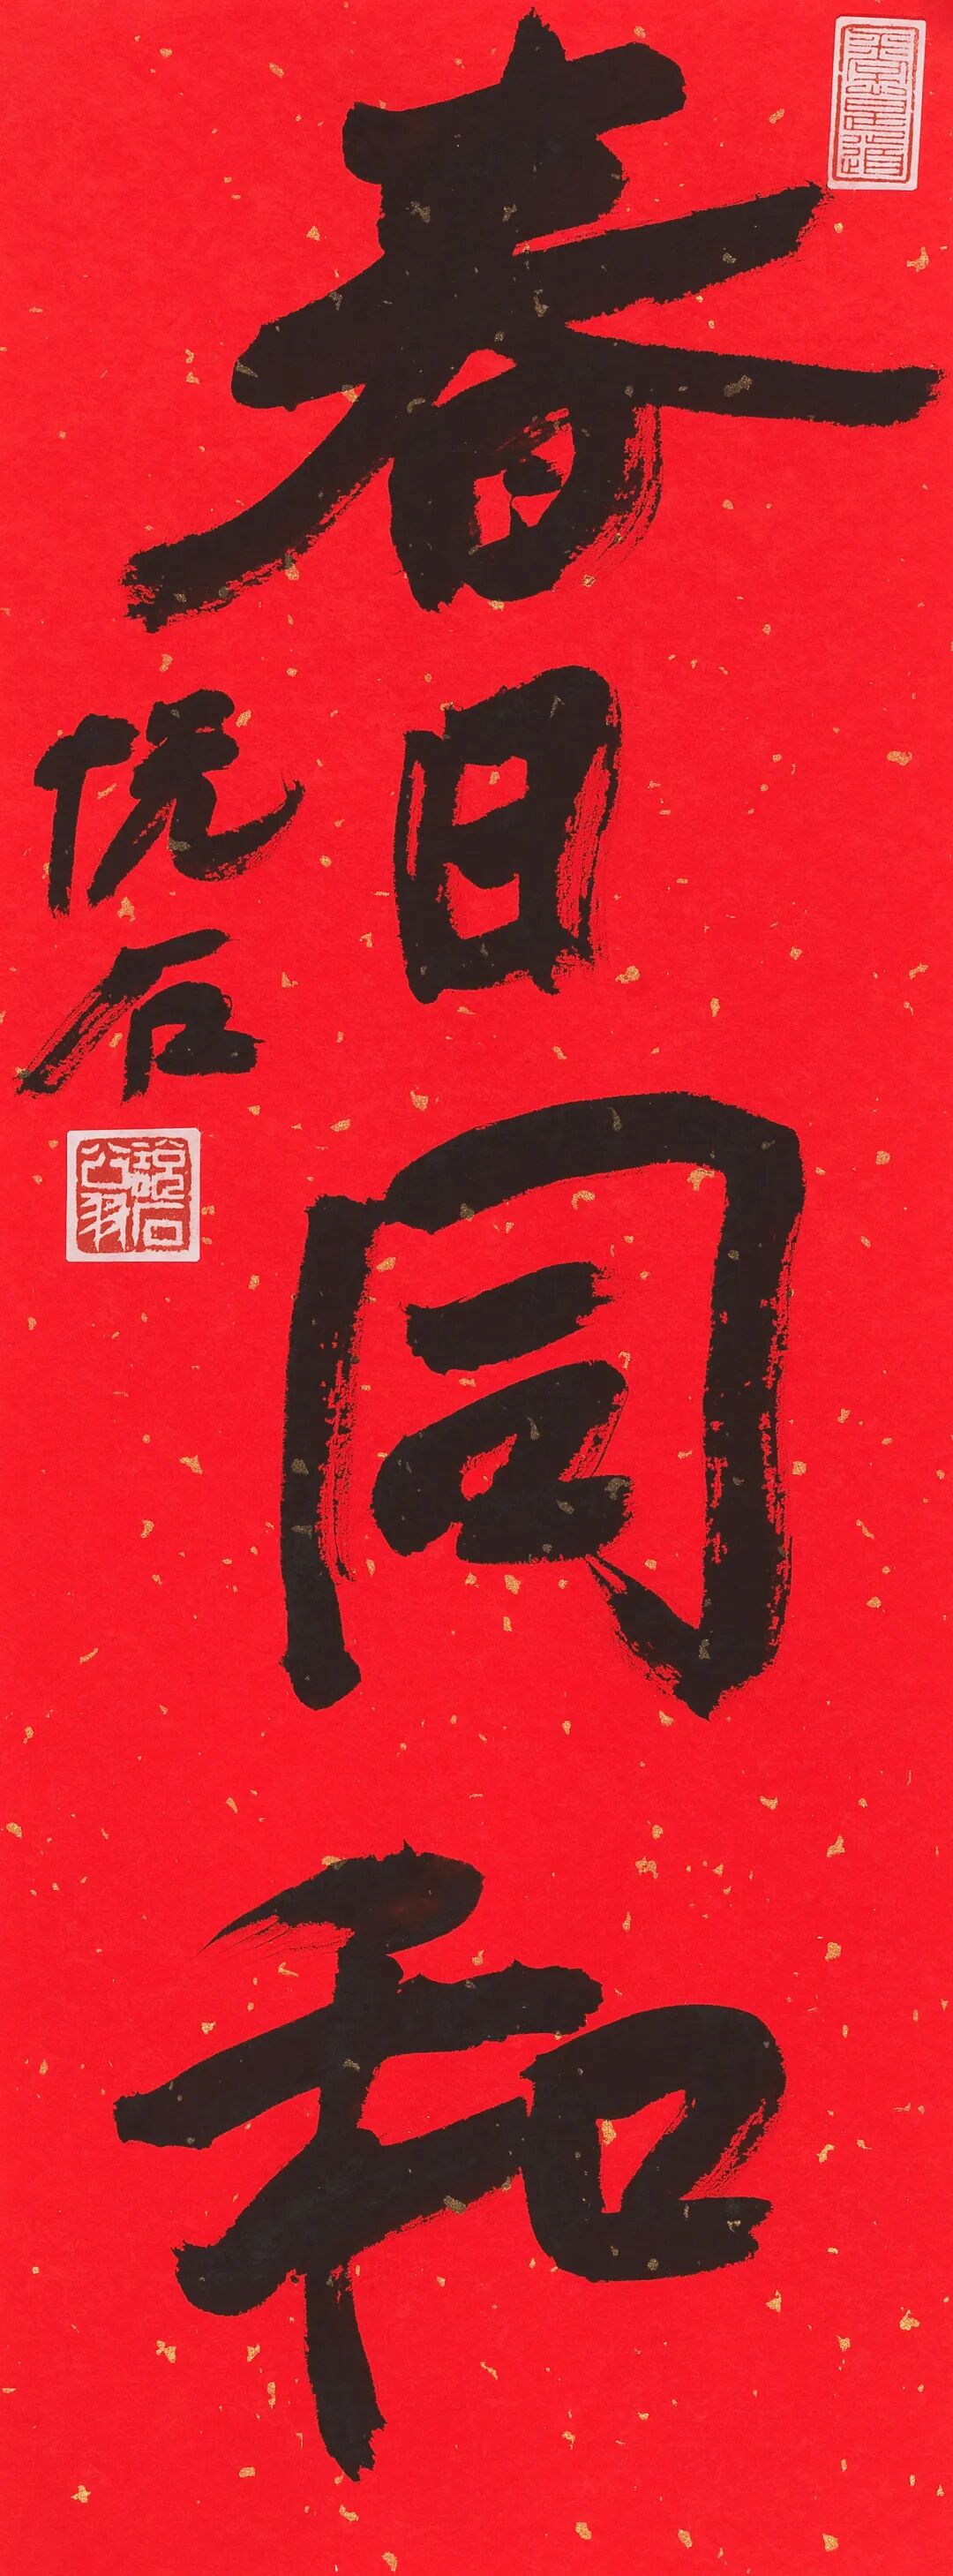 春日同和
悦石